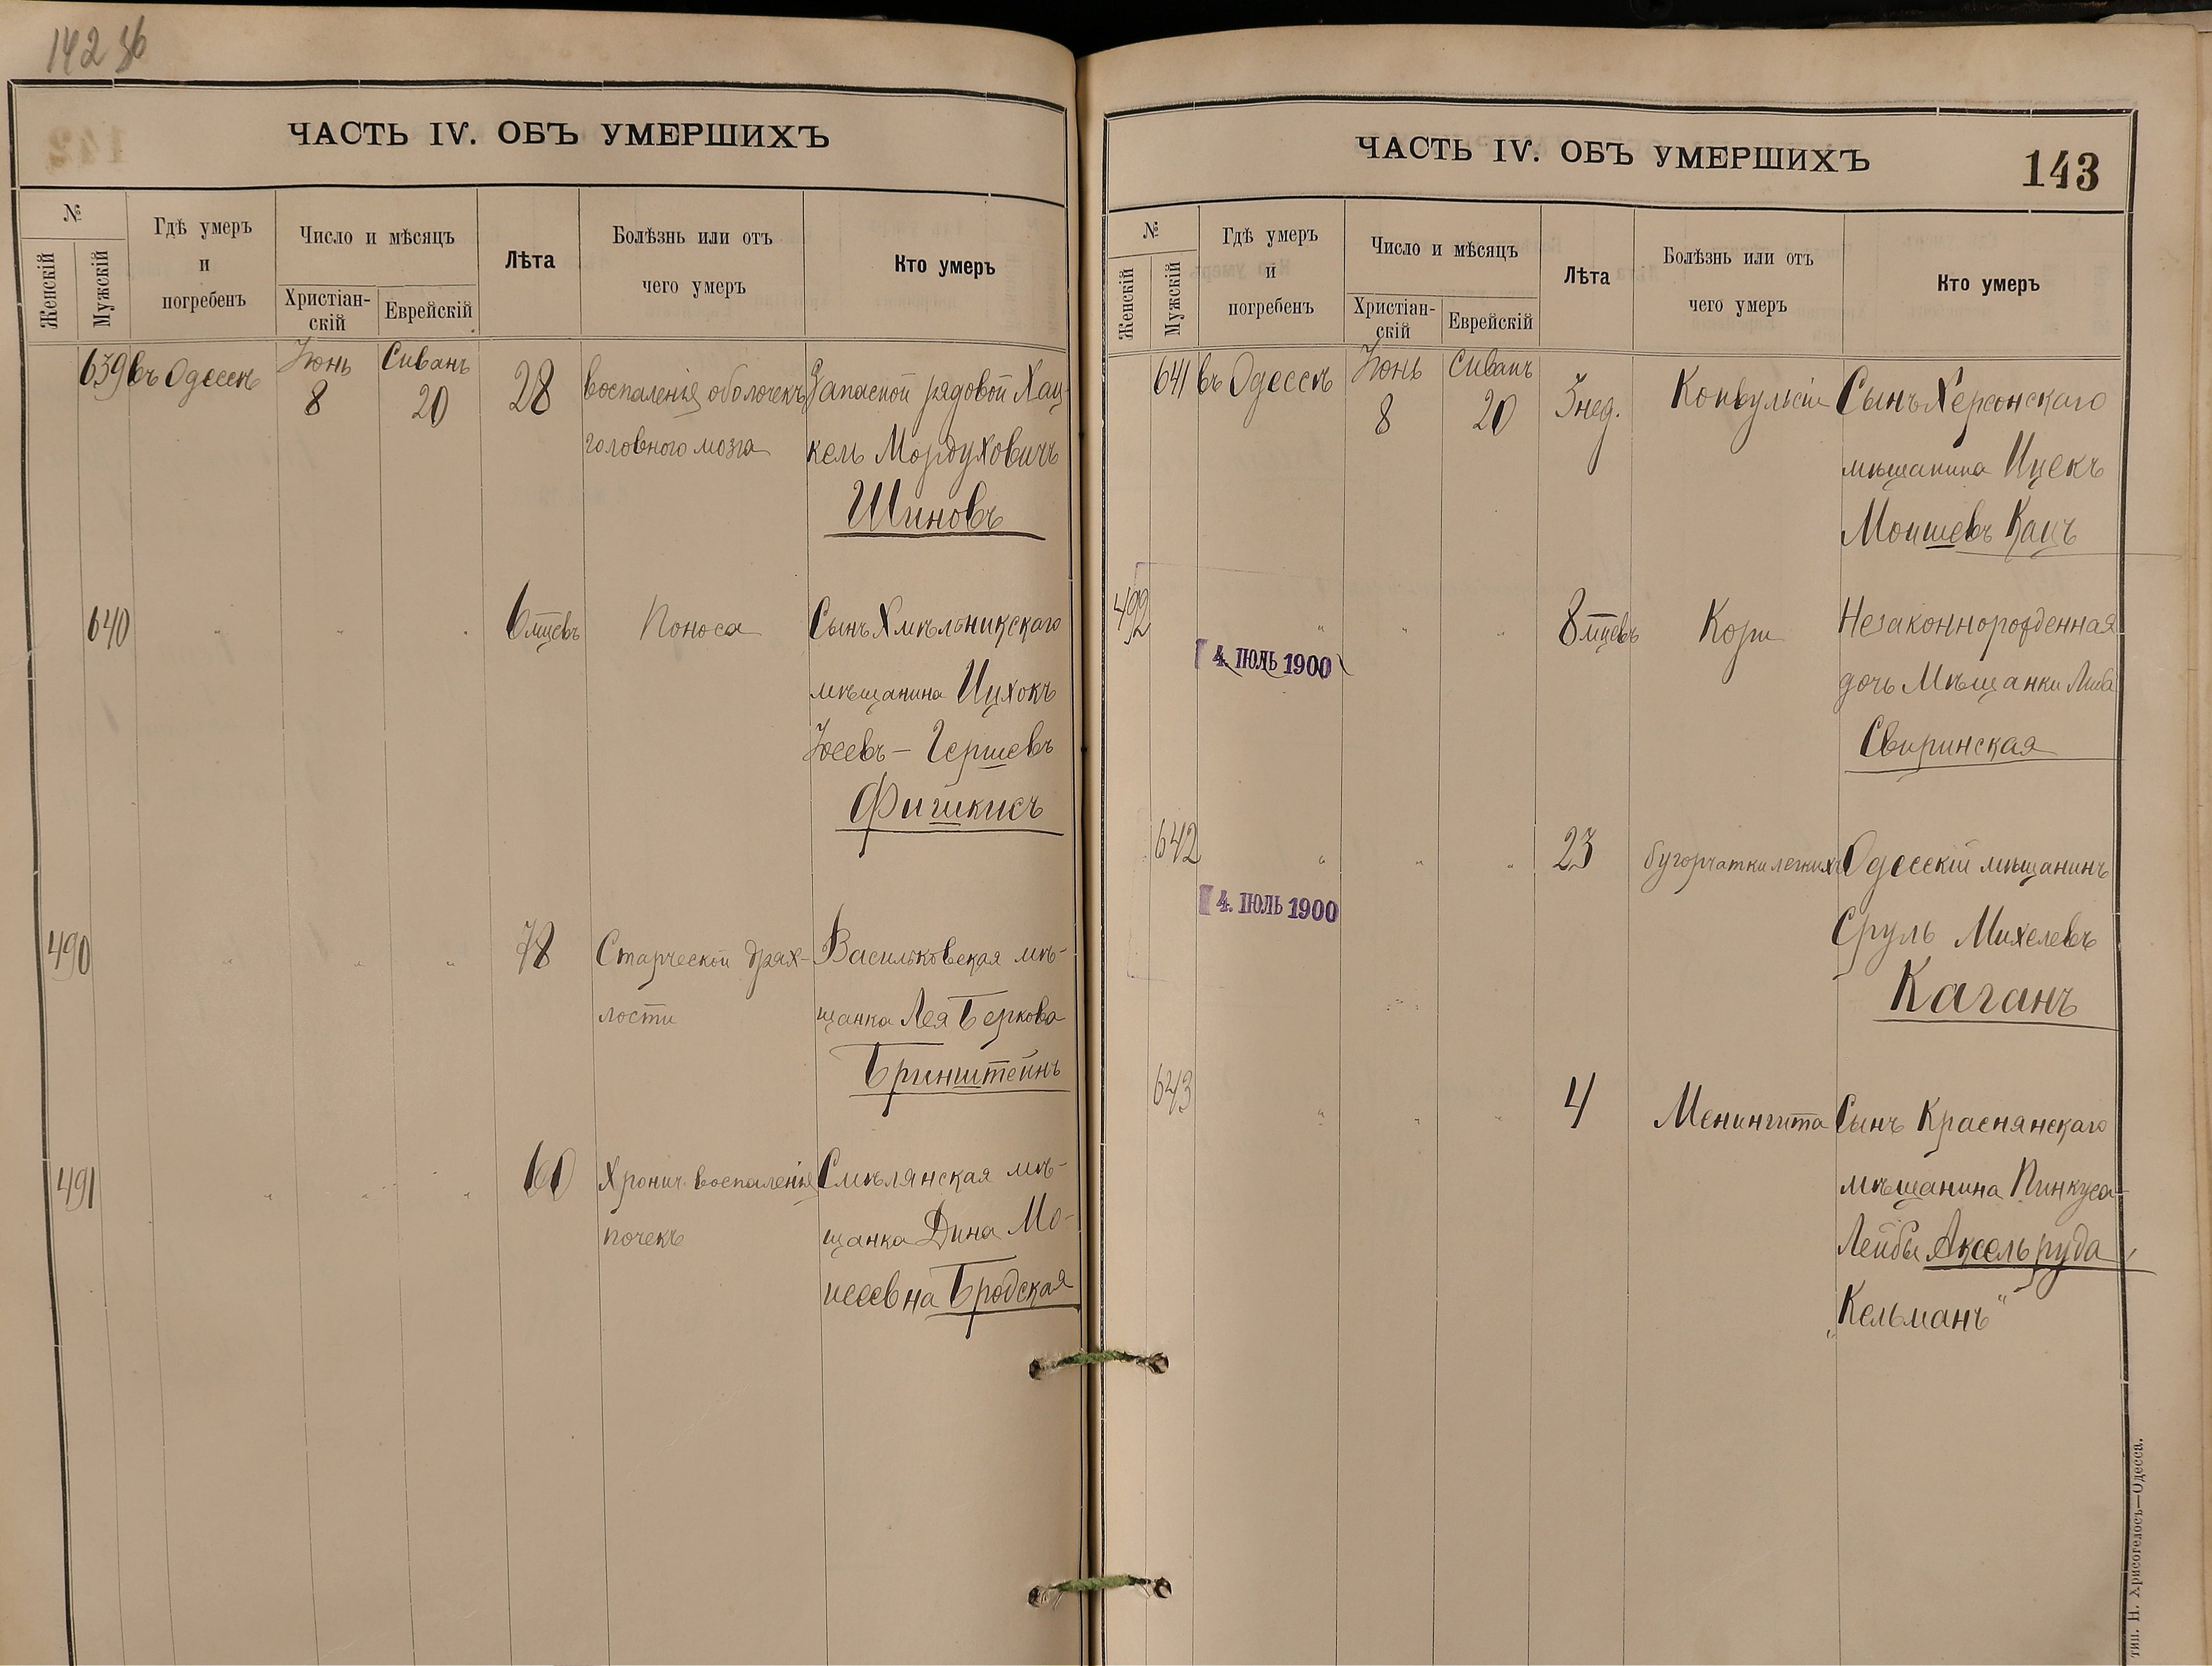 142 об
ЧАСТЬ IV. ОБЪ УМЕРШИХЪ
№
Женскій
Мужскій
Гдѣ умеръ
и
погребенъ
Число и мѣсяцъ
Христіан-
скій
Еврейскій
Лѣта
Болѣзнь или отъ
чего умеръ
Кто умеръ
639 въ Одессѣ Іюнь Сиванъ 28 воспаленія оболочекъ Запасной рядовой Хац-
8 20 головного мозга кель Мордуховичъ
Шиновъ
640 " " " 6 мцевъ Поноса Сынъ Хмѣльникскаго
мѣщанина Ицхокъ
Іосевъ - Гершевъ
Фишкисъ
490 " " " 78 Старческой дрях- Васильковская мѣ-
лости щанка Лея Беркова
Бринштейнъ
491 " " " 60 Хронич. воспаленія Смѣлянская мѣ-
почекъ щанка Дина Мо-
исеевна Бродская
ЧАСТЬ IV. ОБЪ УМЕРШИХЪ
143
№
Женскій
Мужскій
Гдѣ умеръ
и
погребенъ
Число и мѣсяцъ
Христіан-
скій
Еврейскій
Лѣта
Болѣзнь или отъ
чего умеръ
Кто умеръ
641 въ Одессѣ Іюнь Сиванъ 3 нед. Конвульсіи Сынъ Херсонскаго
8 20 мѣщанина Ицекъ
Моишевъ Кацъ
492 " " " 8 мцевъ Кори Незаконнорожденная
4. ІЮЛЬ 1900
дочь Мѣщанки Либа
Свиринская
642 " " " 23 бугорчатки легкихъ Одесскій мѣщанинъ
4. ІЮЛЬ 1900
Сруль Михелевъ
Каганъ
643 " " " 4 Менингита Сынъ Краснянскаго
мѣщанина Пинкуса-
Лейбы Аксельруда,
„Кельманъ“
тип. Н. Хрисогелосъ—Одесса.